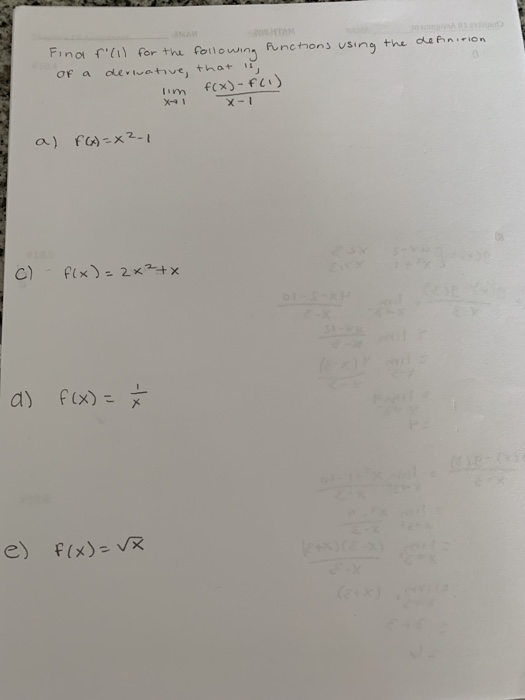 Find f'(1) for the following functions using the definition
of a derivative, that is,
lim x→1 f(x)-f(1) / x-1
a) f(x)=x²-1
c) f(x)=2x²+x
d) f(x)= 1/x
e) f(x)=√x